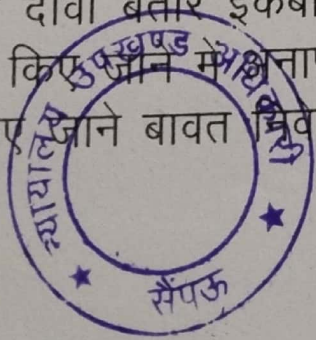 दावा बतौर इकब
किए जाने में अना
ए जाने बावत निवे
न्यायालय उपखण्ड अधिकारी
सैंपऊ